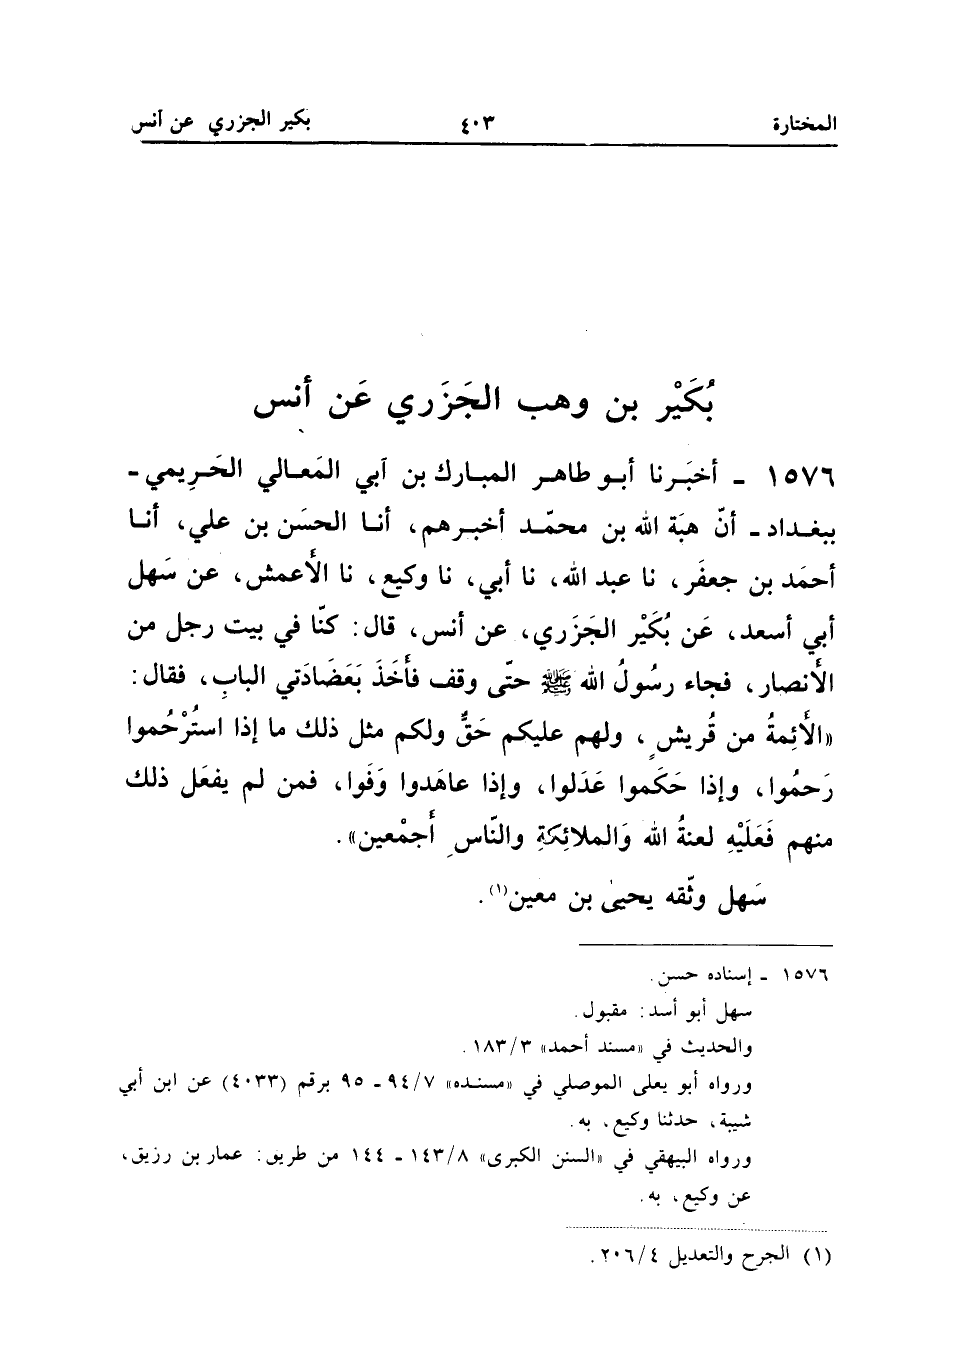 المختارة ٤٠٣ بكير الجزري عن أنس
بُكَيْر بن وهب الجَزَري عَن أنس
١٥٧٦ - أخبَرنا أبو طاهر المبارك بن أبي المَعالي الحَريمي -
ببغداد - أنّ هبَة الله بن محمّد أخبرهم، أنا الحسَن بن علي، أنا
أحمَد بن جعفَر، نا عبد الله، نا أبي، نا وكيع، نا الأَعمش، عن سَهل
أبي أسعد، عَن بُكَيْر الجَزَري، عن أنس، قال: كنّا في بيت رجل من
الأَنصار، فجاء رسُولُ الله ﷺ حتّى وقف فأَخَذَ بَعَضَادَتي البابِ، فقال:
«الأَئِمةُ من قُريشٍ، ولهم عليكم حَقٌّ ولكم مثل ذلك ما إذا استُرْحُموا
رَحمُوا، وإذا حَكَموا عَدَلوا، وإذا عاهَدوا وَفَوا، فمن لم يفعَل ذلك
منهم فَعَلَيْهِ لعنةُ الله وَالملائِكةِ والنّاسِ أَجمْعين».
سَهل وثّقه يحيىٰ بن معين(١).
١٥٧٦ - إسناده حسن.
سهل أبو أسد: مقبول.
والحديث في «مسند أحمد» ١٨٣/٣.
ورواه أبو يعلى الموصلي في «مسنده» ٩٤/٧ - ٩٥ برقم (٤٠٣٣) عن ابن أبي
شيبة، حدثنا وكيع، به.
ورواه البيهقي في «السنن الكبرى» ١٤٣/٨ - ١٤٤ من طريق: عمار بن رزيق،
عن وكيع، به.
(١) الجرح والتعديل ٢٠٦/٤.